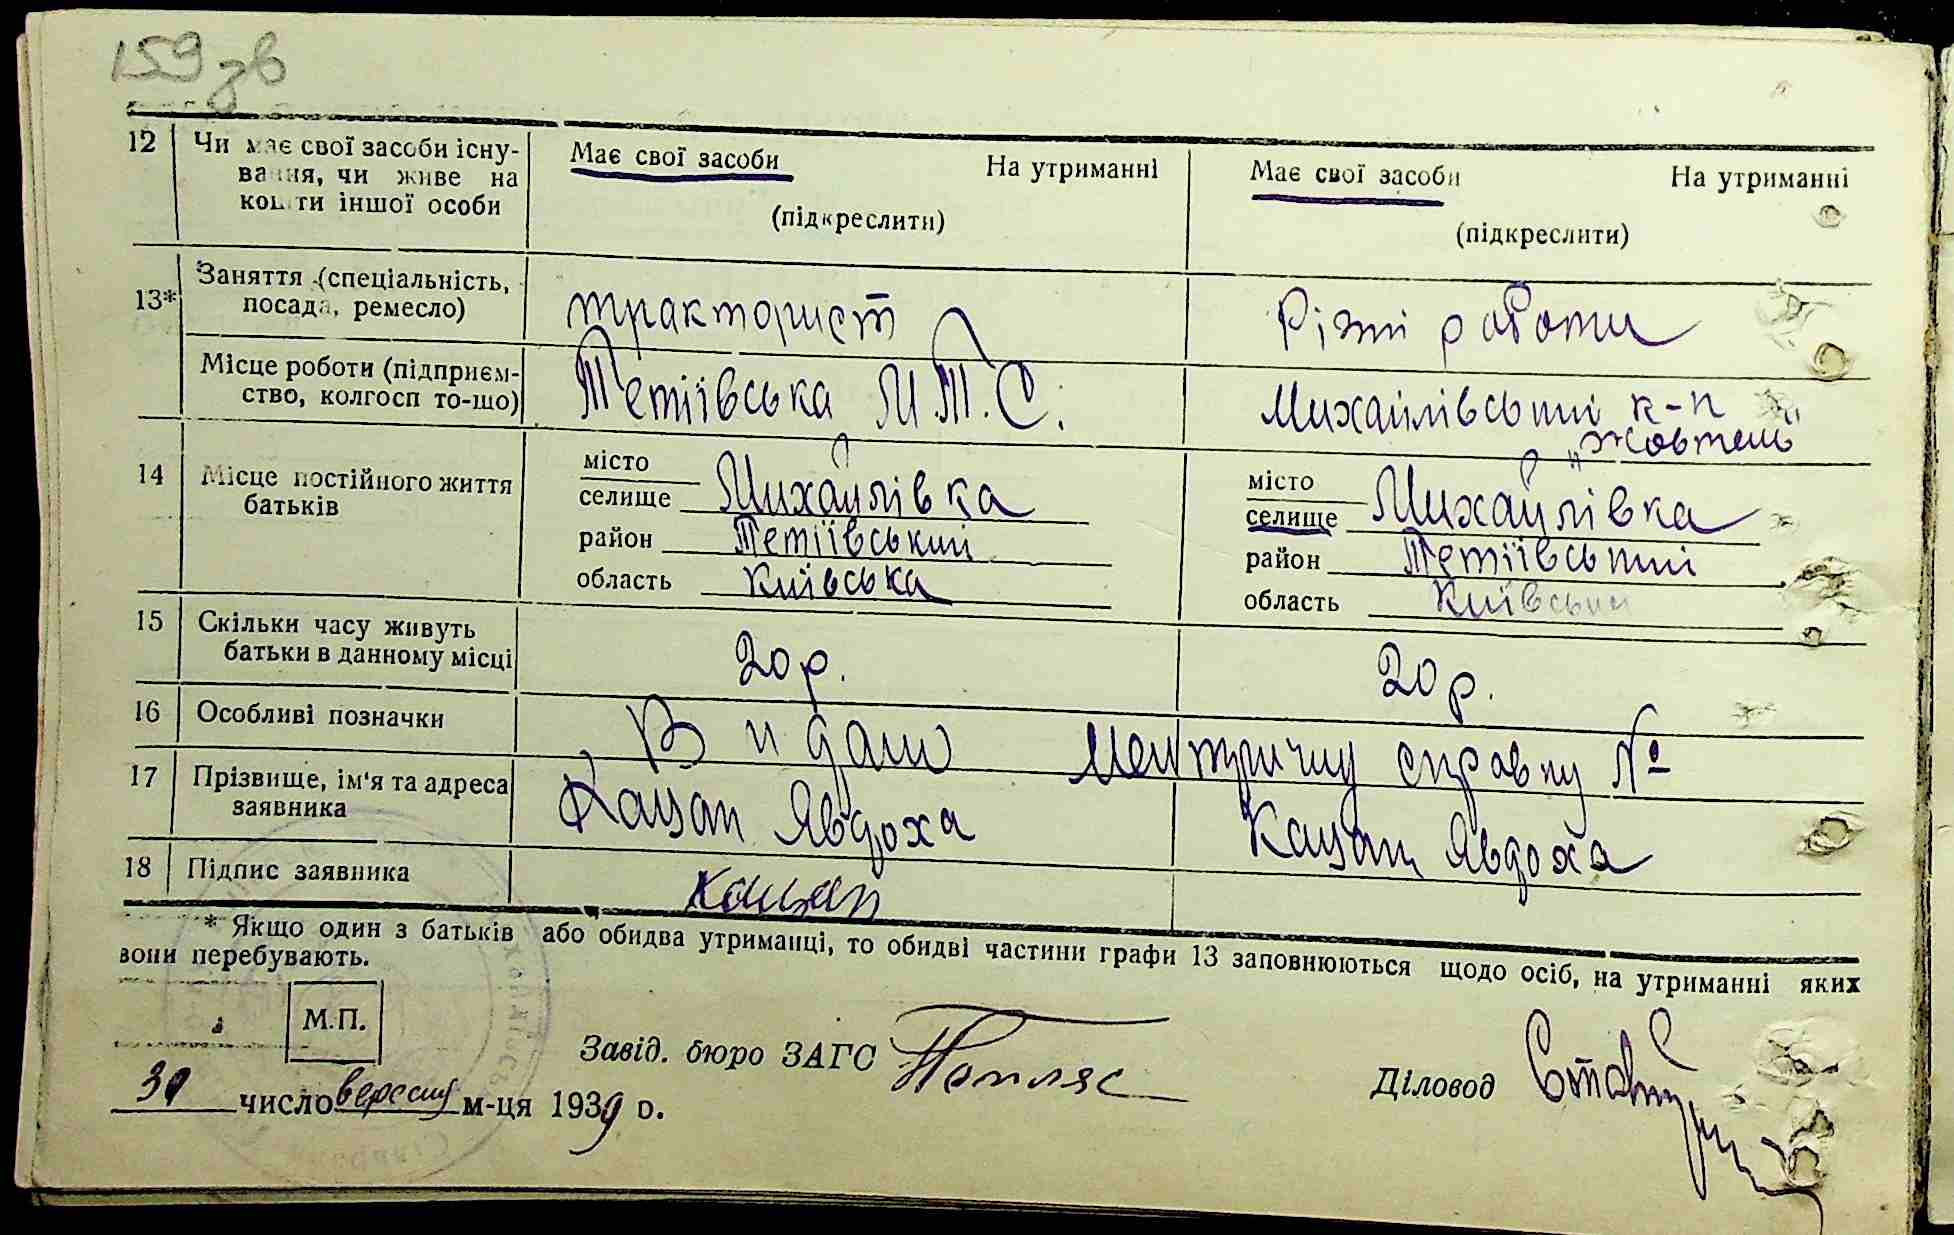 159 зв
12 Чи має свої засоби існу-
вання, чи живе на
кошти іншої особи
Має свої засоби На утриманні
(підкреслити)
Має свої засоби На утриманні
(підкреслити)
13* Заняття (спеціальність,
посада, ремесло)
тракторист
Різні роботи
Місце роботи (підприєм-
ство, колгосп то-що)
Тетіївська М.Т.С.
Михайлівський к-п
„Жовтень"
14 Місце постійного життя
батьків
місто
селище Михайлівка
район Тетіївський
область Київська
місто
селище Михайлівка
район Тетіївський
область Київськи
15 Скільки часу живуть
батьки в данному місці
20 р.
20 р.
16 Особливі позначки
Видали метричну справку №
17 Прізвище, ім'я та адреса
заявника
Кацап Явдоха
Кацап Явдоха
18 Підпис заявника
Кацап
* Якщо один з батьків або обидва утриманці, то обидві частини графи 13 заповнюються щодо осіб, на утриманні яких
вони перебувають.
М.П.
Завід. бюро ЗАГС
Діловод
30 число вересня м-ця 1939 р.